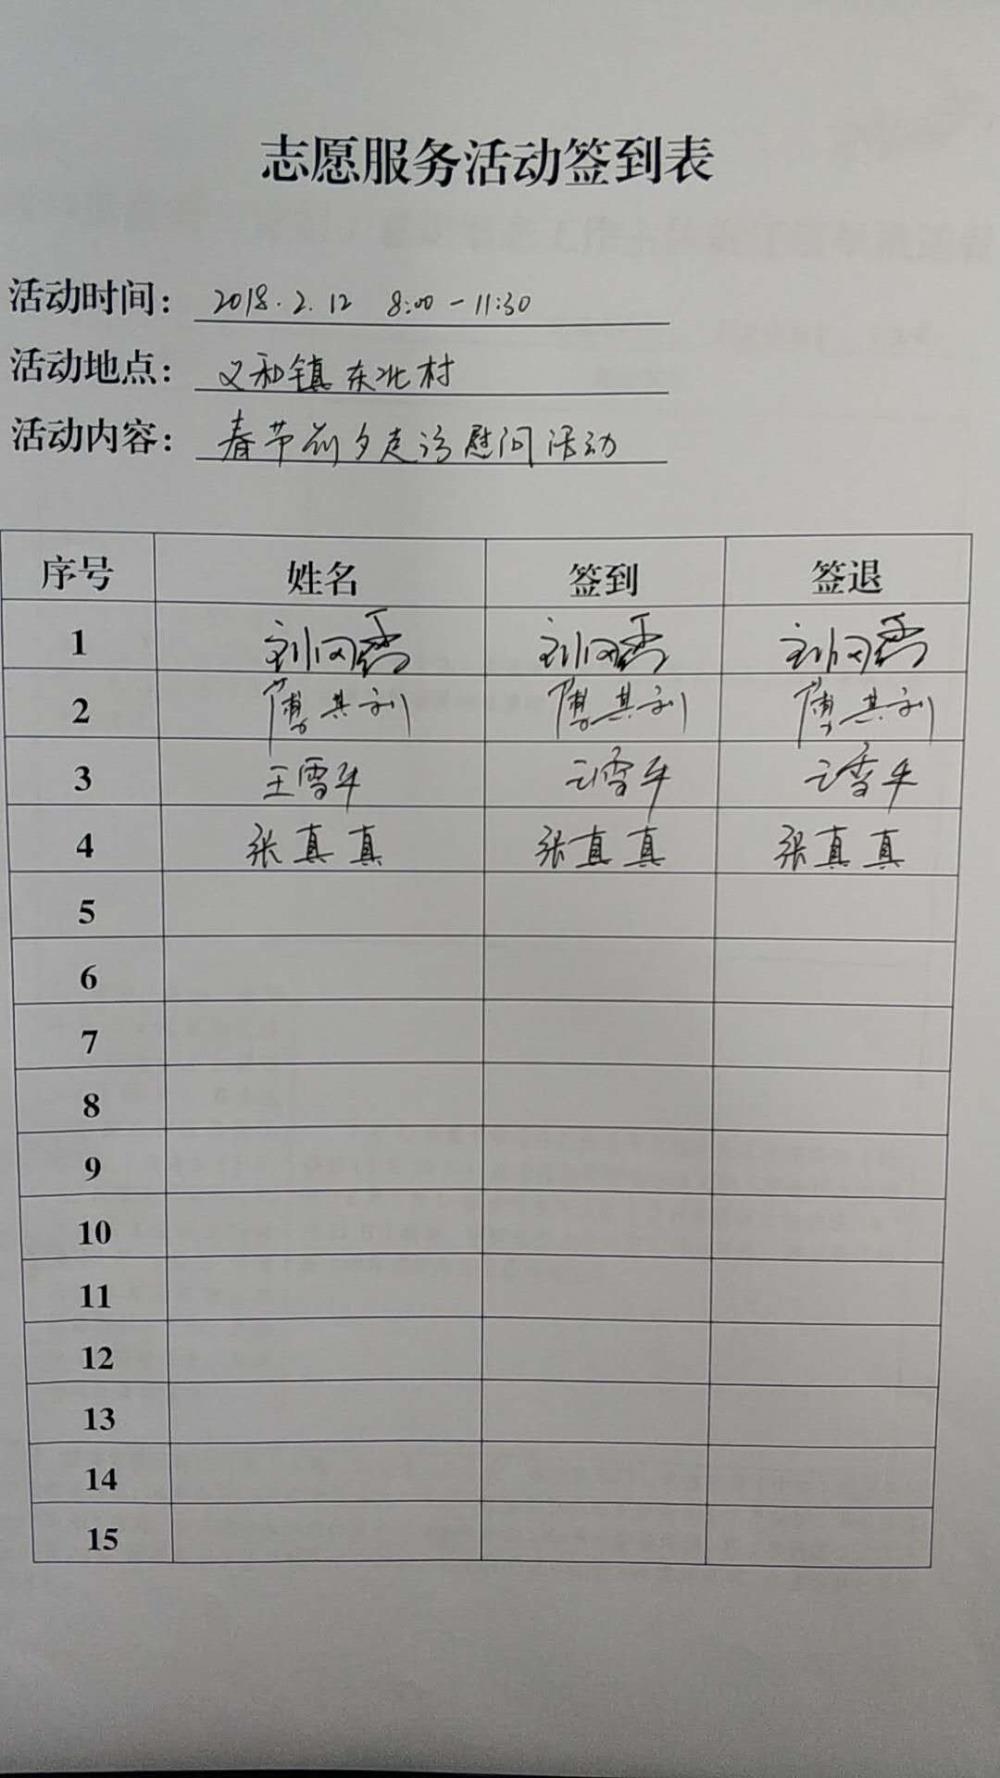 志愿服务活动签到表
活动时间: 2018.2.12 8:00-11:30
活动地点: 义和镇东北村
活动内容: 春节前夕走访慰问活动
序号 姓名 签到 签退
1 刘冈香 刘冈香 刘冈香
2 傅其利 傅其利 傅其利
3 王雪平 王雪平 王雪平
4 张真真 张真真 张真真
5
6
7
8
9
10
11
12
13
14
15